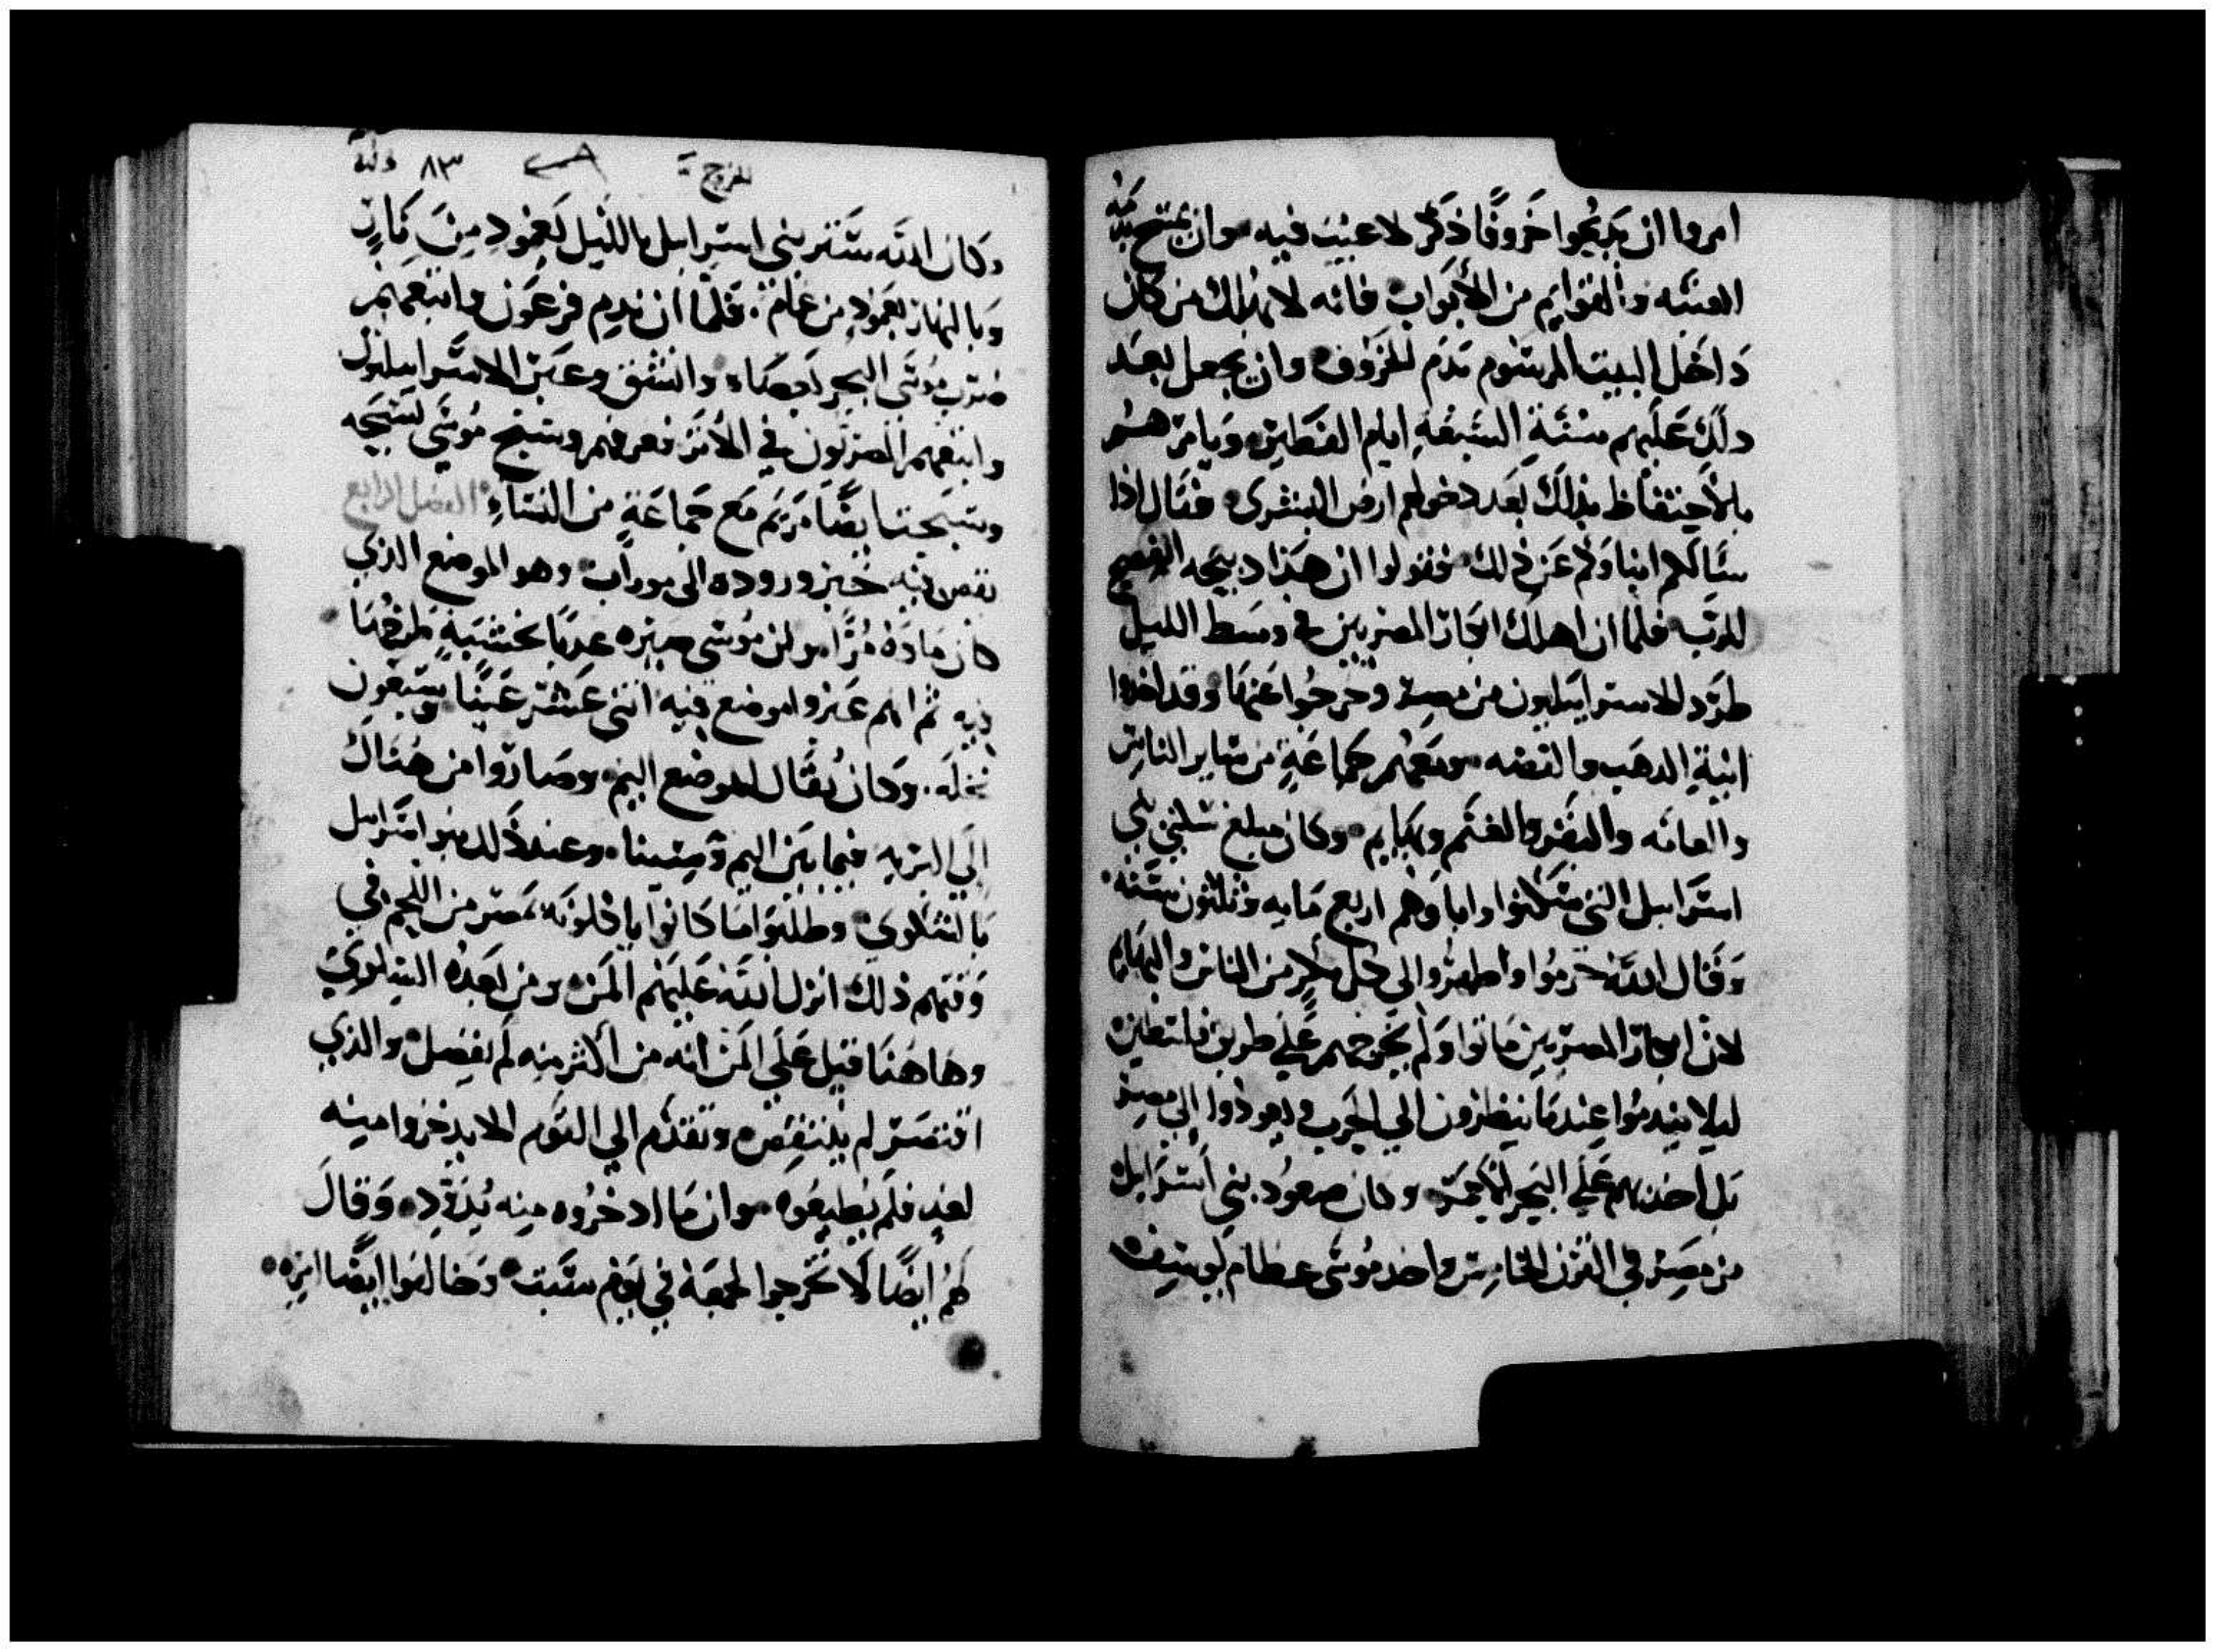 امروا ان يدبحوا خروفًا ذكر لا عيب فيه وان يمسح بدمه
العتبه والقوايم من الأبواب فانه لا يهلك من كان
داخل البيت المرشوم بدم الخروف وان يجعل بعد
دلك عليهم سنة السبعة ايام الفطير ويامرهم
بالأحتفاظ بذلك بعد دخولهم ارض البشرى فقال اذا
سالكم ابناوكم عن ذلك فقولوا ان هذا دبيحه الفصح
للرب فلما ان اهلك ابكار المصريين في وسط الليل
طرد الاسراييليون من مصر وخرجوا عنها وقد اخدوا
انية الدهب والفضه ومعهم جماعة من ساير الناس
والعامه والبقر والغنم وبهايم وكان مبلغ سكنى بني
اسراييل التي سكنوا واباوهم اربع مايه وثلثون سنه
وقال الله حرموا واطهروا لي كل بكر من الناس والبهايم
لان ابكار المصريين ماتوا ولم يخرجهم على طريق فلسطين
ليلا يندموا عندما ينظرون الي الحرب ويعودوا الي مصر
بل اخدبهم علي البحر الأحمر وكان صعود بني اسراييل
من مصر في القرن الخامس واخد موسى عظام يوسف
الخروج ٨٣
وكان الله ستر بني اسراييل بالليل بعمود من نارٍ
وبالنهار بعمود من غمام فلما ان ندم فرعون واتبعهم
ضرب موسى البحر بعصاه وانشق وعبر الاسراييليون
واتبعهم المصريون في الأثر فغرقهم وسبح موسي تسبيحه
وسبحت ايضًا مريم مع جماعة من النساء الفصل الرابع
نقص فيه خبز وروده الى موراب وهو الموضع الذي
كان ماوه مرًا ولن موسى صيره عدبًا بخشبةٍ طرحها
فيه ثم انهم عبروا لموضع فيه اثني عشر عينًا وسبعون
نخله وكان يقال للموضع اليم وصاروا من هناك
الي البريه فيما بين اليم وسينا وعند ذلك بنوا اسراييل
بالشكوي وطلبوا ما كانوا ياكلونه بمصر من اللحم في
وقتهم ذلك انزل الله عليهم المن ومن بعده السلوي
وهاهنا قيل علي المن انه من اكثر منه لم يفضل والذي
اقتصر لم ينتقص وتقدم الي القوم الا يدخروا منه
لغدٍ فلم يطيعوه وان ما ادخروه منه يدود وقال
لهم ايضًا لا تخرجوا لجمعه في يوم سبت وخالفوا ايضًا امره